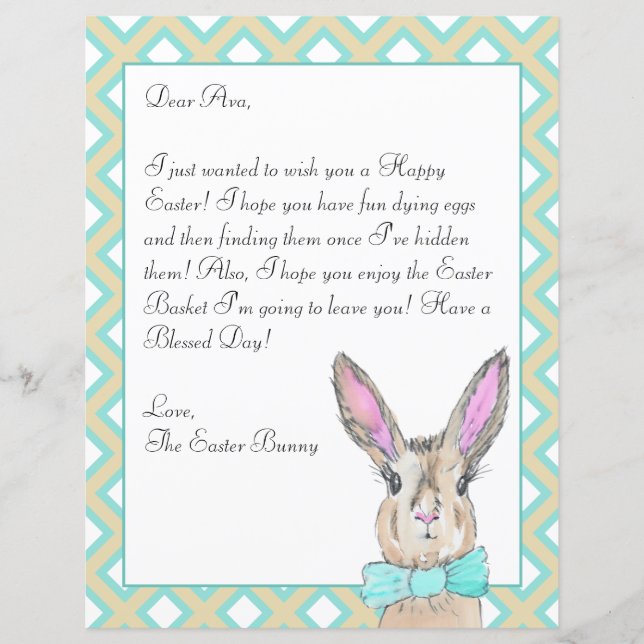 Dear Ava,
I just wanted to wish you a Happy
Easter! I hope you have fun dying eggs
and then finding them once I've hidden
them! Also, I hope you enjoy the Easter
Basket I'm going to leave you! Have a
Blessed Day!
Love,
The Easter Bunny